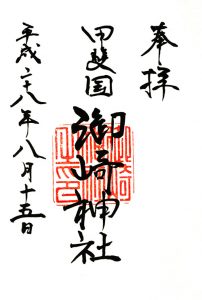 奉拝
甲斐国
御崎神社
平成二十八年八月十五日